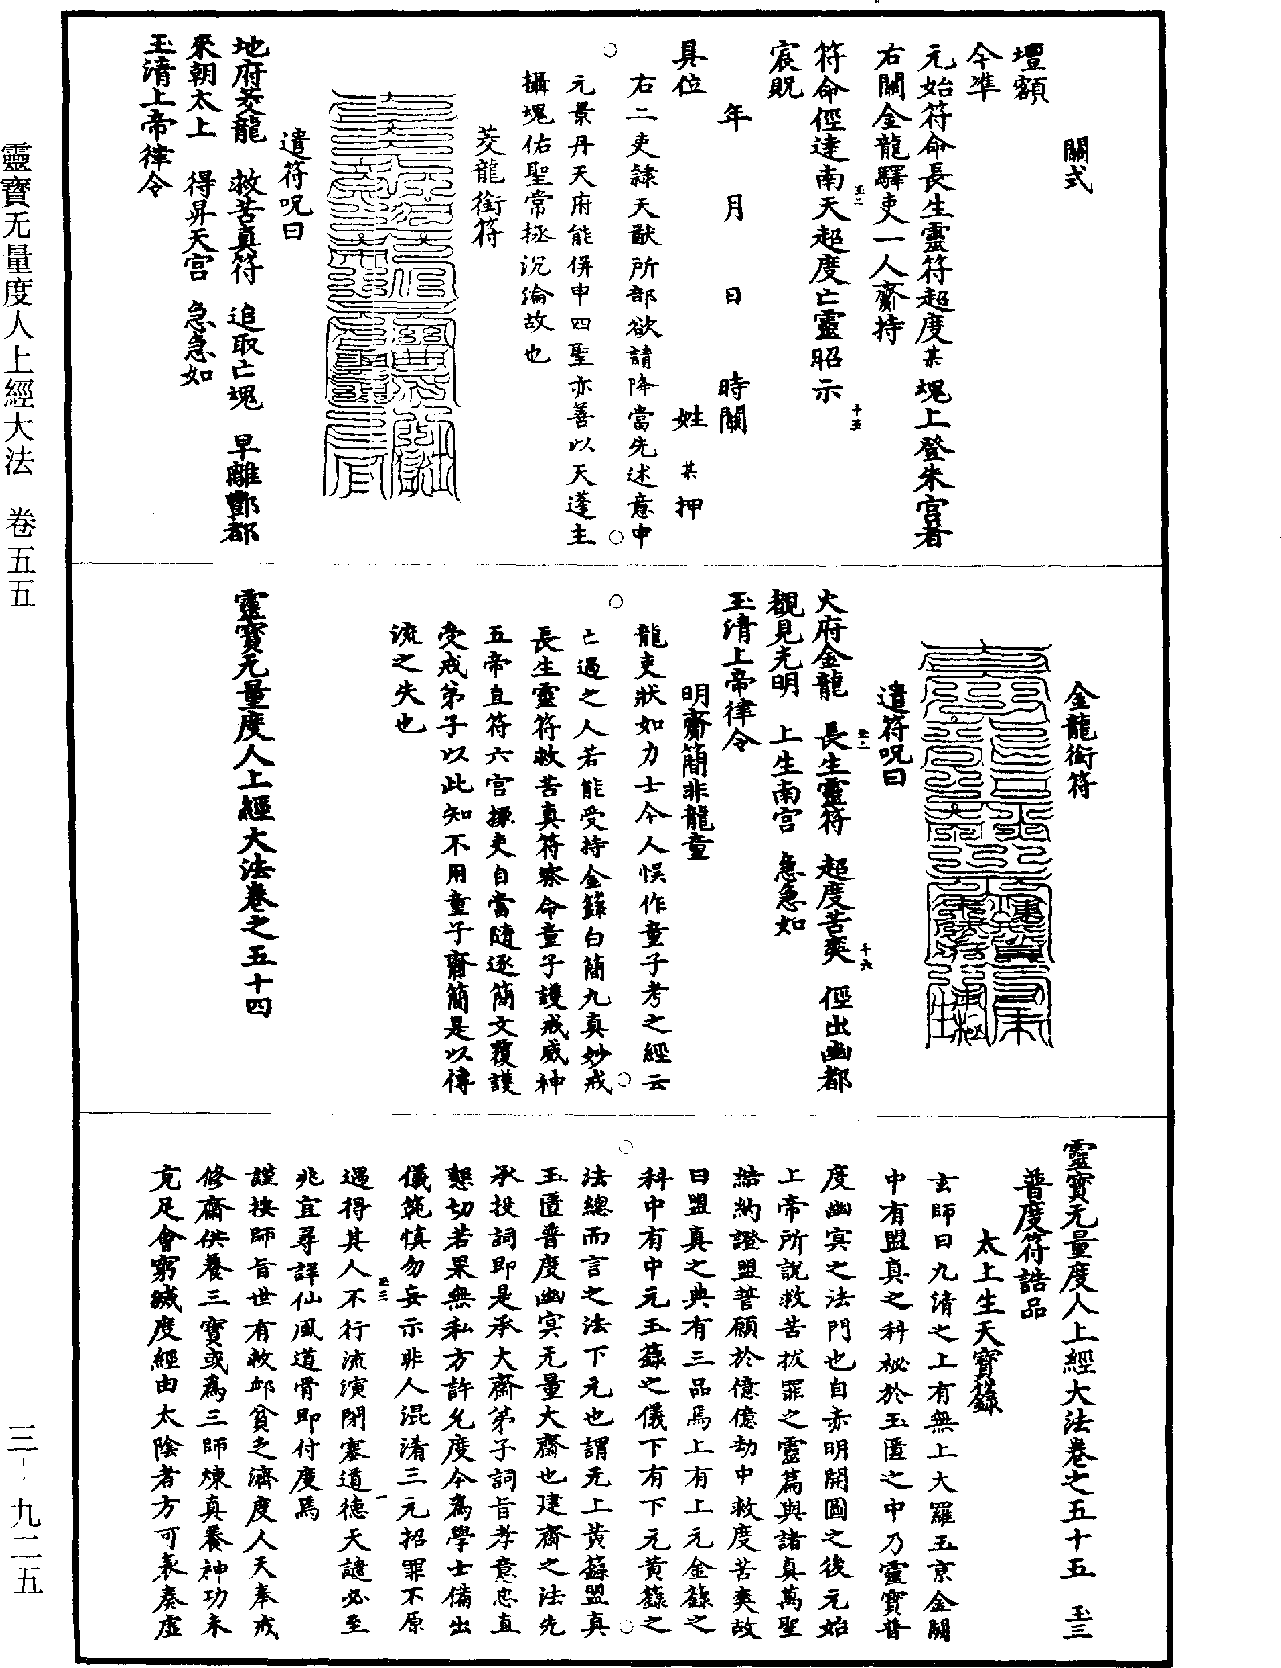 關式
壇額
今準
元始符命長生靈符超度某魂上登朱宮者
右關金龍驛吏一人齎持
符命徑達南天超度亡靈昭示
宸貺
年 月 日 時關
具位 姓 某 押
右二吏隸天猷所部欲請降當先述意申
元景丹天府能併申四聖亦善以天蓬主
攝魂佑聖常拯沉淪故也
茭龍銜符
遣符呪曰
地府茭龍 救苦真符 追取亡魂 早離酆都
來朝太上 得昇天宮 急急如
玉清上帝律令
金龍銜符
遣符呪曰
火府金龍 長生靈符 超度苦爽 徑出幽都
覩見光明 上生南宮 急急如
玉清上帝律令
明齋簡非龍童
龍吏狀如力士今人悞作童子考之經云
亡過之人若能受持金籙白簡九真妙戒
長生靈符救苦真符察命童子護戒威神
五帝直符六宮掾吏自當隨逐簡文覆護
受戒弟子以此知不用童子齎簡是以傳
流之失也
靈寶无量度人上經大法卷之五十四
靈寶无量度人上經大法卷之五十五 玉三
普度符誥品
太上生天寶籙
玄師曰九清之上有無上大羅玉京金闕
中有盟真之科祕於玉匱之中乃靈寶普
度幽冥之法門也自赤明開圖之後元始
上帝所說救苦拔罪之靈篇與諸真萬聖
結納證盟誓願於億億劫中救度苦爽故
曰盟真之典有三品焉上有上元金籙之
科中有中元玉籙之儀下有下元黃籙之
法總而言之法下元也謂无上黃籙盟真
玉匱普度幽冥无量大齋也建齋之法先
承投詞即是承大齋弟子詞旨孝意忠直
懇切若果無私方許允度今為學士備出
儀範慎勿妄示非人混淆三元招罪不原
遇得其人不行流演閉塞道德天譴必至
兆宜尋譯仙風道骨即付度焉
謹按師旨世有救䘏貧乏濟度人天奉戒
修齋供養三寶或為三師煉真養神功未
充足會窮滅度經由太陰者方可表奏虛
靈寶无量度人上經大法 卷五五
三-九二五